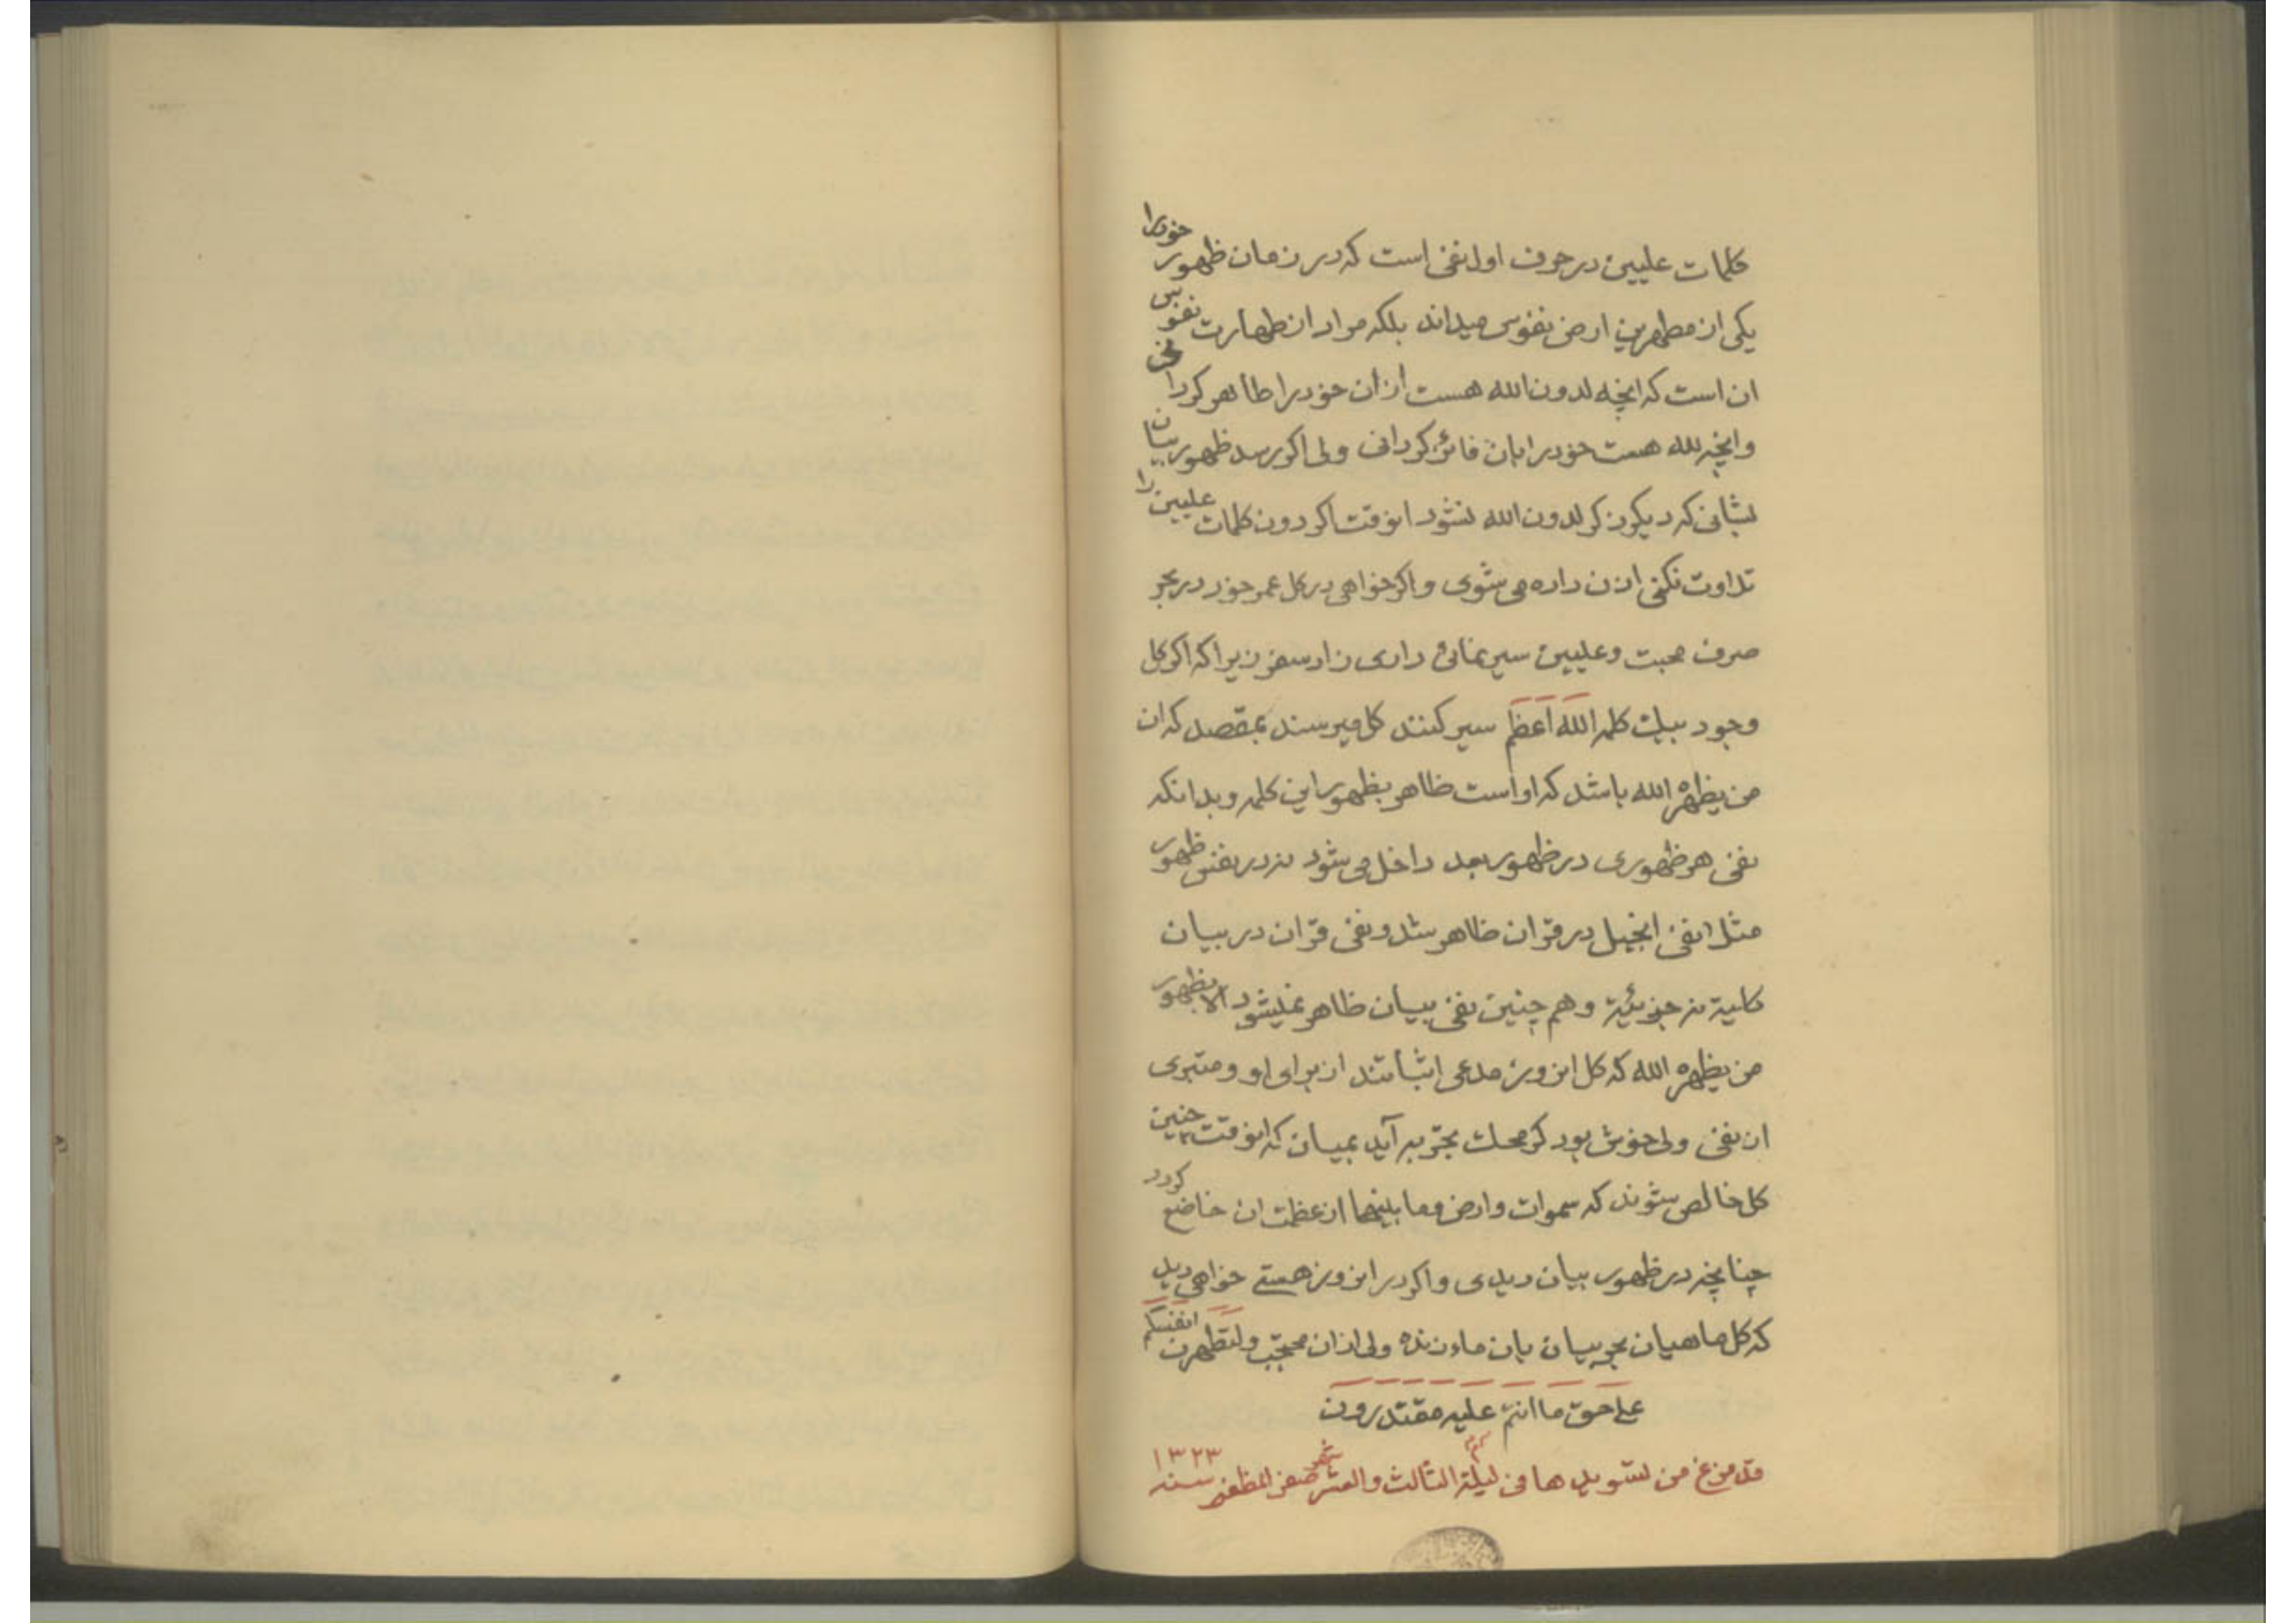 کلمات علیین در حرف اول نفی است که در زمان ظهور خود را
یکی از مطهرین ارض نفوس میداند بلکه مراد از طهارت نفوس
ان است که انچه لدون الله هست از ان خود را طاهر کردانی
وانچه لله هست خود را بان فائز کردانی ولی اکر رسد ظهور بیان
بشانی که دیکر ذکر لدون الله نشود انوقت اکر دون کلمات علیین را
تلاوت نکنی اذن داده می شوی و اکر خواهی در کل عمر خود در بحر
صرف محبت وعلیین سیر نمائی داری زاد سفر زیرا که اکر کل
وجود بیك کلمه الله اعظم سیر کنند کل میرسند بمقصد که ان
من یظهره الله باشد که او است ظاهر بظهور این کلمه و بدانکه
نفی هر ظهوری در ظهور بعد داخل می شود نه در نفی ظهور
مثلا نفی انجیل در قران ظاهر شد و نفی قران در بیان
کلیة نه جزئیة و هم چنین نفی بیان ظاهر نمیشود الا بظهور
من یظهره الله که کل انروز مدعی اثباتند از برای او و متبری
از نفی ولی خوش بود کر محك تجربه آید بمیان که انوقت چنین
کل خالص شوند که سموات وارض وما بینهما از عظمت ان خاضع کردد
چنانچه در ظهور بیان دیدی و اکر در انروز هستی خواهی دید
که کل ماهیان بحر بیان بان ماء زنده ولی از ان محتجب ولتطهرن انفسکم
علی حق ما انتم علیه مقتدرون
قد فرغ من تسوید ها فی لیلة الثالث والعشر شهر صفر المظفر سنه ۱۳۲۳